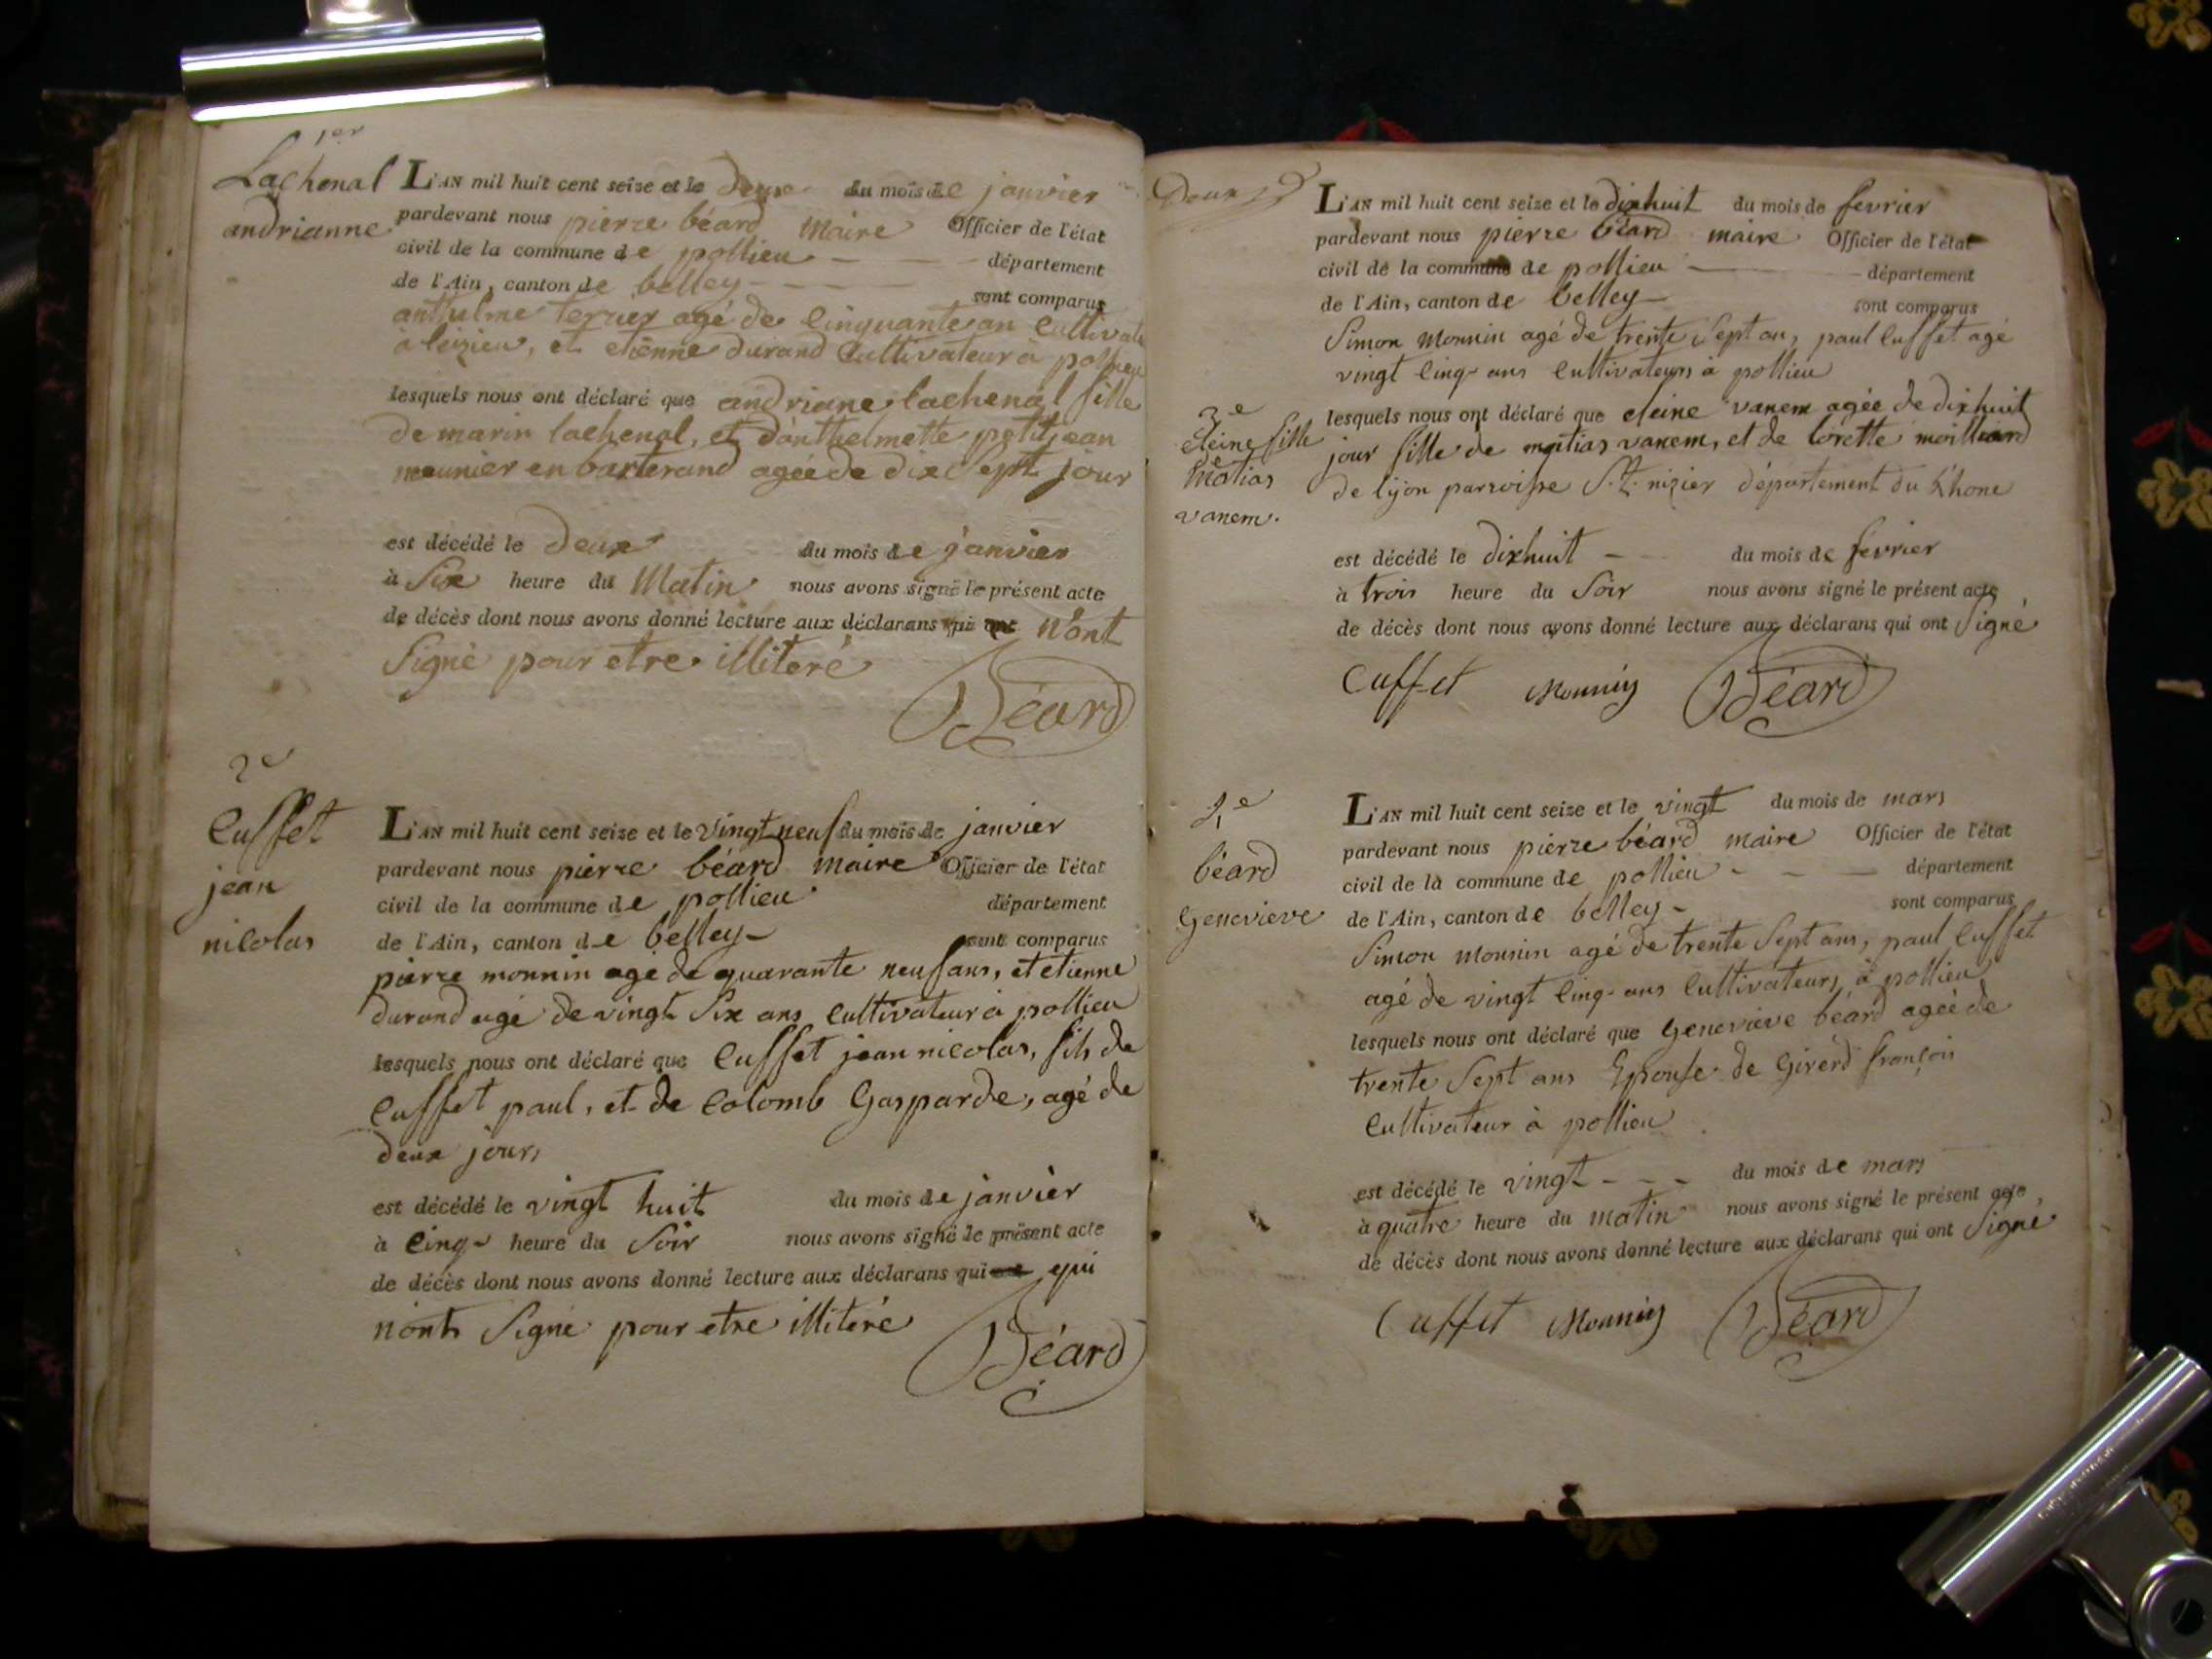 1er
Lachenal
andrianne
L'AN mil huit cent seise et le deux du mois de janvier
pardevant nous pierre béard maire Officier de l'état
civil de la commune de pollieu département
de l'Ain, canton de belley sont comparus
anthelme terrier agé de cinquante an cultivat
à leizieu, et etienne durand cultivateur à pollieu
lesquels nous ont déclaré que andriane lachenal fille
de marin lachenal, et d'anthelmette petitjean
meunier en barterand agée de dix sept jour
est décédé le deux du mois de janvier
à six heure du Matin nous avons signé le présent acte
de décès dont nous avons donné lecture aux déclarans qui ont n'ont
signé pour etre illiteré
Béard
2e
Cuffet
jean
nicolas
L'AN mil huit cent seize et le vingt neuf du mois de janvier
pardevant nous pierre béard maire Officier de l'état
civil de la commune de pollieu département
de l'Ain, canton de belley sont comparus
pierre monnin agé de quarante neuf ans, et etienne
durand agé de vingt six ans cultivateur à pollieu
lesquels nous ont déclaré que Cuffet jean nicolas, fils de
Cuffet paul, et de Colomb Gasparde, agé de
deux jours
est décédé le vingt huit du mois de janvier
à cinq heure du soir nous avons signé le présent acte
de décès dont nous avons donné lecture aux déclarans qui ont qui
n'onts signé pour etre illiteré
Béard
Deux
3e
eleine fille
de
matias
vanem.
L'AN mil huit cent seize et le dixhuit du mois de fevrier
pardevant nous pierre béard maire Officier de l'état
civil de la commune de pollieu département
de l'Ain, canton de belley sont comparus
Simon Monnin agé de trente sept an, paul Cuffet agé
vingt cinq ans cultivateurs à pollieu
lesquels nous ont déclaré que eleine vanem agée de dixhuit
jour fille de matias vanem, et de lorette moilliard
de lyon parroisse S.t nizier département du Rhone
est décédé le dixhuit du mois de fevrier
à trois heure du soir nous avons signé le présent acte
de décès dont nous avons donné lecture aux déclarans qui ont signé
Cuffet Monnin Béard
4e
béard
Genevieve
L'AN mil huit cent seize et le vingt du mois de mars
pardevant nous pierre béard maire Officier de l'état
civil de la commune de pollieu département
de l'Ain, canton de belley sont comparus
Simon Monnin agé de trente sept ans, paul Cuffet
agé de vingt cinq ans cultivateurs à pollieu
lesquels nous ont déclaré que Genevieve béard agée de
trente sept ans Epouse de Girerd françois
cultivateur à pollieu
est décédé le vingt du mois de mars
à quatre heure du matin nous avons signé le présent acte,
de décès dont nous avons donné lecture aux déclarans qui ont signé
Cuffet Monnin Béard